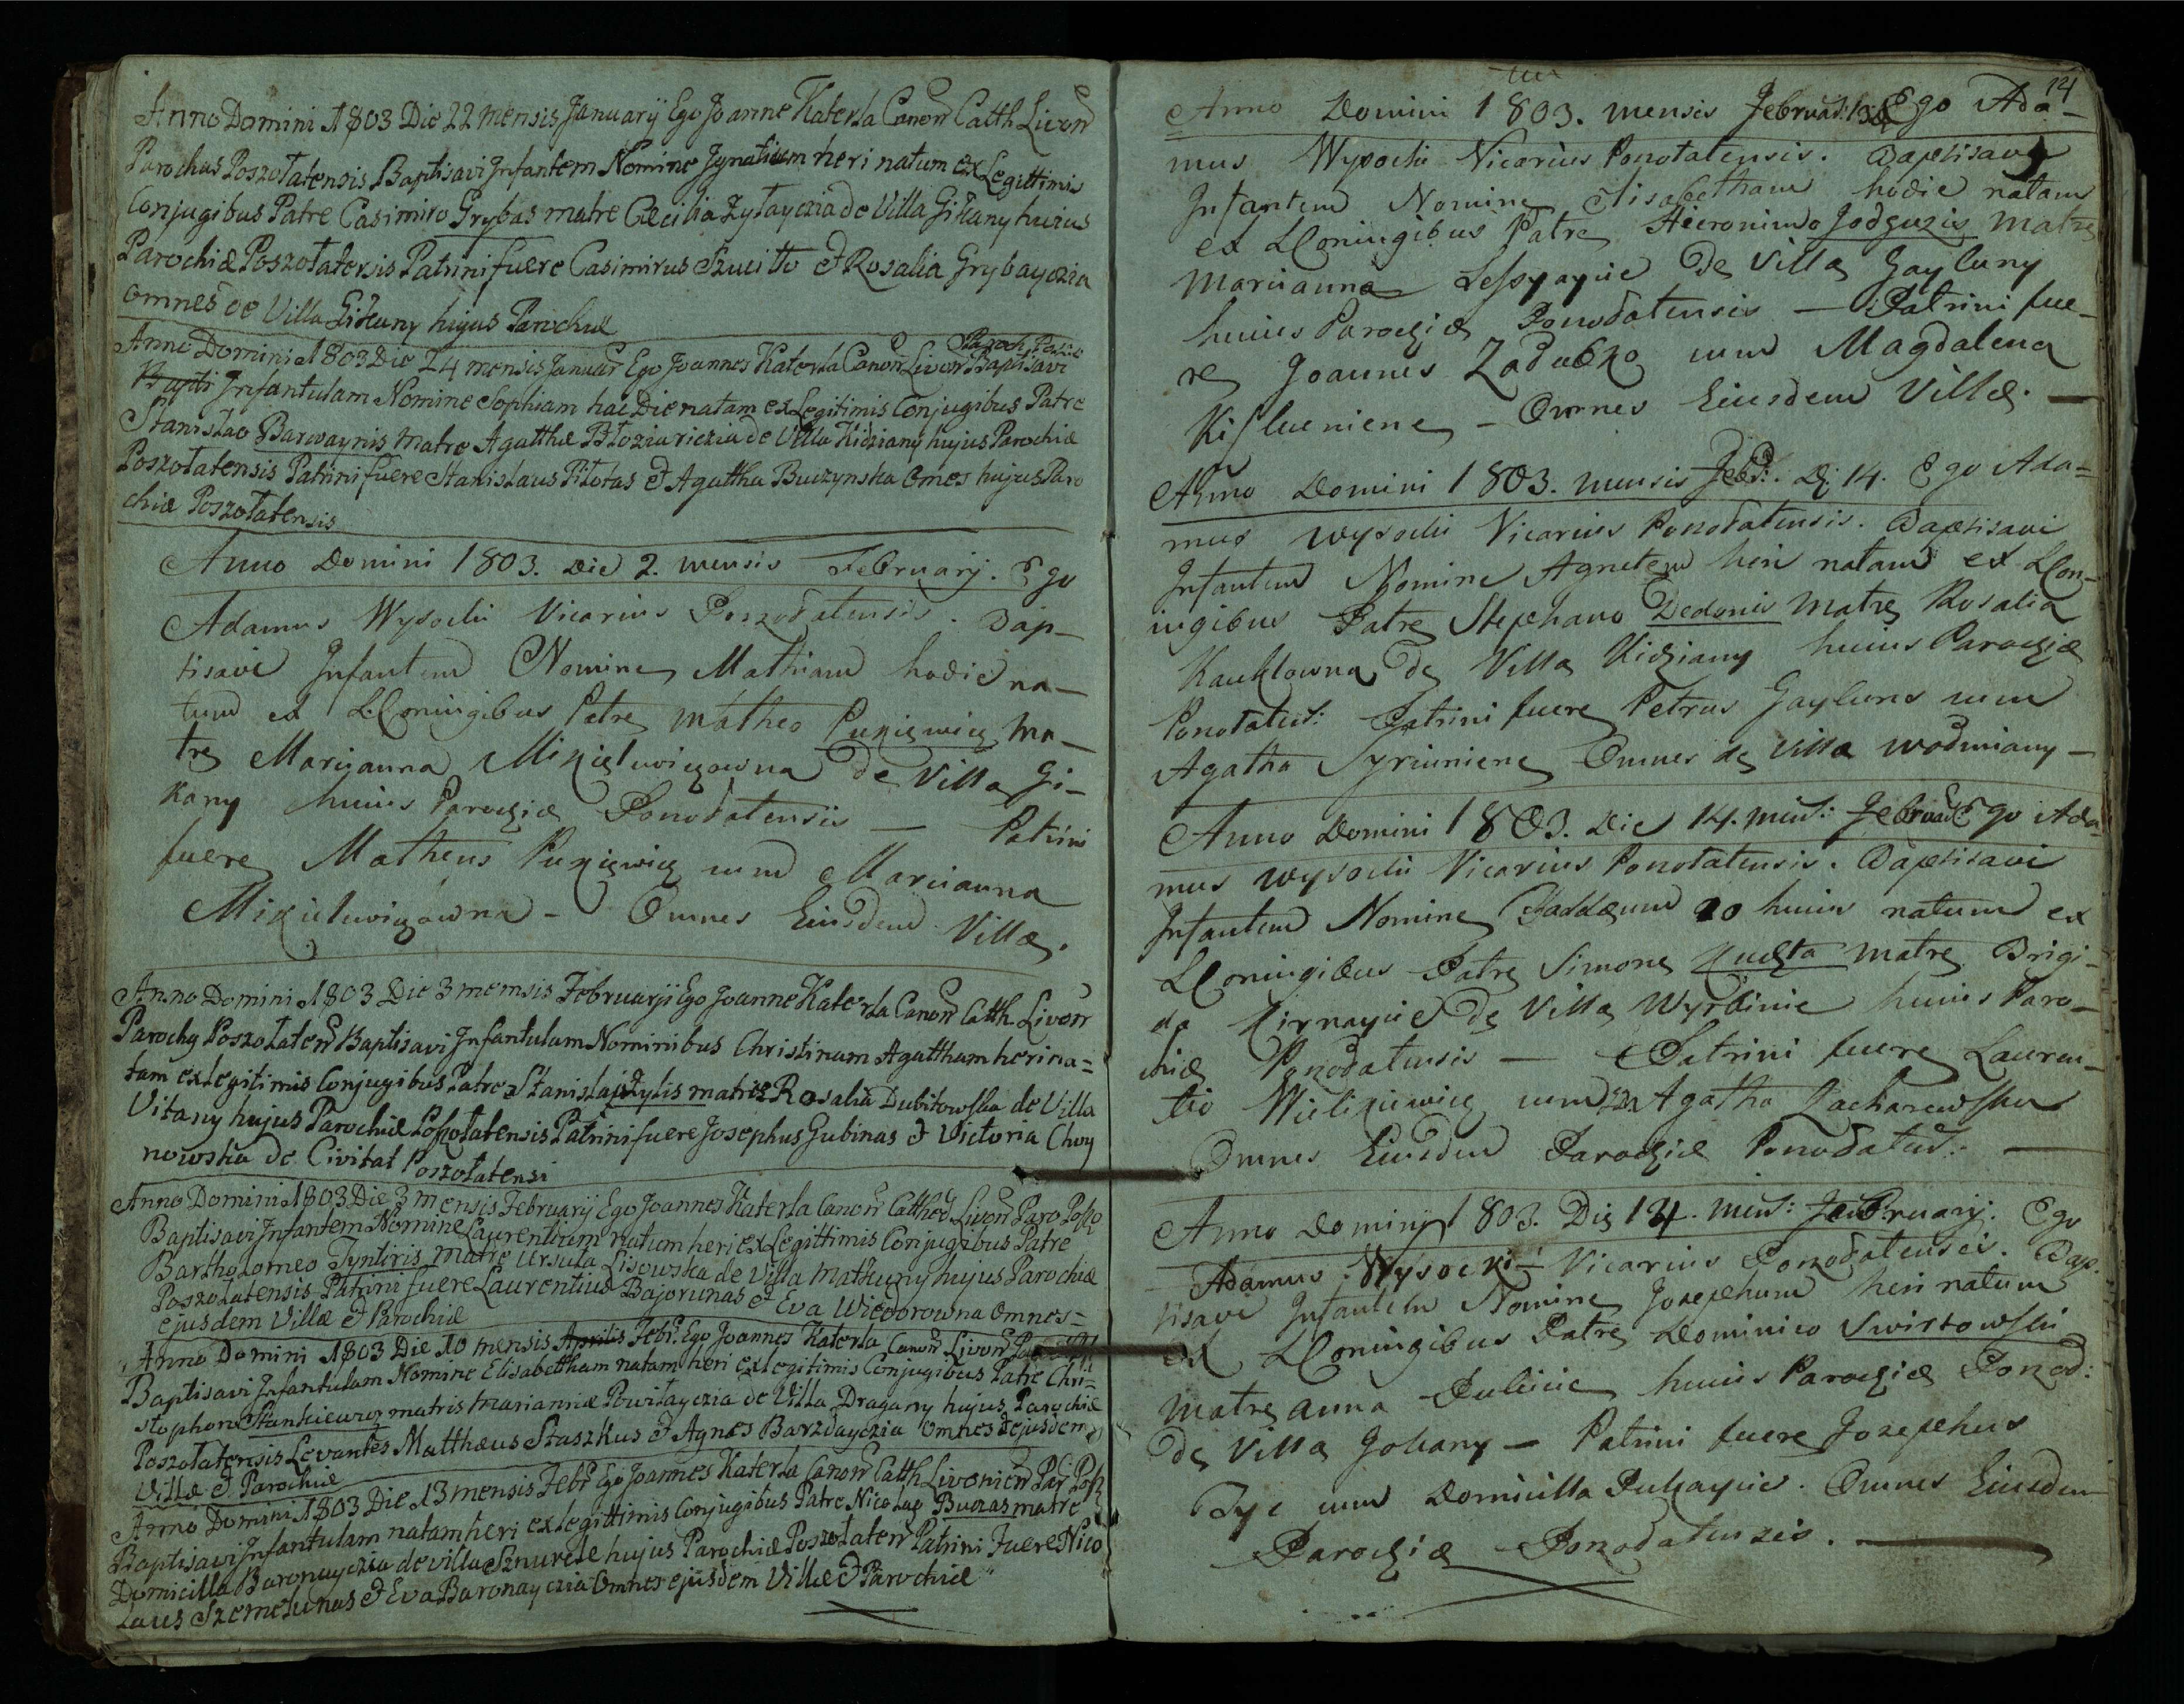 Anno Domini 1803 Die 22 mensis January Ego Joanne Katerla Canon Catth Livon
Parochus Poszotatensis Baptisavi Infantem Nomine Ignatium heri natum ex Legittimis
Conjugibus Patre Casimiro Grybas matre Cæcilia Zytayczia de Villa Gikany huius
Parochiæ Poszotatensis Patrini fuere Casimirus Szucitto & Rosalia Grybayczia
omnes de Villa Gikany hujus Parochiæ
Anno Domini 1803 Die 24 mensis Januar Ego Joannes Katerla Canon Livon Baptisavi
Infantulam Nomine Sophiam hac Die natam ex Legitimis Conjugibus Patre
Stanislao Barwaynis matre Agatthæ de Villa Kidziany hujus Parochiæ
Poszotatensis Patrini fuere Stanislaus Pitotas & Agattha Buczynska Omes hujus Paro
chiæ Poszotatensis
Anno Domini 1803. Die 2. mensis February. Ego
Adamus Wysocki Vicarius Poszotatensis. Bap-
tisavi Infantem Nomine Mathiam hodie na-
tum ex LConiugibus Patre Matheo Punigwicz Ma-
tre Maryanna de Villa Gi-
kany huius Parochiæ Poszotatensis — Patrini
fuere Matheus Punigwicz cum Maryanna
Omnes Eiusdem Villæ.
Anno Domini 1803 Die 3 memsis Februarji Ego Joanne Katerla Canon Catth Livon
Parochy Poszotaten Baptisavi Infantulam Nominibus Christinam Agattham heri na=
tam ex legitimis Conjugibus Patre matre Rosalia Dubitowska de Villa
Vitany hujus Parochiæ Poszotatensis Patrini fuere Josephus Gubinas & Victoria Choy
nowska de Civitat Poszotatensi
Anno Domini 1803 Die 3 mensis February Ego Joannes Katerla Canon Catthed Livon Paro Poszo
Baptisavi Infantem Nomine Laurentium natum heri ex Legittimis Conjugibus Patre
Bartholomeo Tyntiris matre Ursula Lisowska de Villa Matkuny hujus Parochiæ
Poszotatensis Patrini fuere Laurentius Bajorunas & Eva Wiedorowna Omnes=
ejusdem Villæ & Parochiæ
Anno Domini 1803 Die 10 mensis Aprilis Feb: Ego Joannes Katerla Canon Livon
Baptisavi Infantulam Nomine Elisabettham natam heri ex legitimis Conjugibus Patre Chri=
stophoro Stankiewicz matris Mariannæ Powitayczia de Villa Dragany hujus Parochiæ
Poszotatensis Levantes Matthæus Staszkus & Agnes Barzdayczia Omnes ejusdem
Villæ & Parochiæ
Anno Domini 1803 Die 13 mensis Feb: Ego Joannes Katerla Canon Catth Livonien Par Posz
Baptisavi Infantulam natam heri ex legittimis Conjugibus Patre Nicolao Buczas matre
Domicilla Baronayczia de Villa Sznurele hujus Parochiæ Poszotaten Patrini Fuere Nico
laus Szemetunas & Eva Baronayczia Omnes ejusdem Villæ & Parochiæ
14
Anno Domini 1803. mensis Februar: 13 Ego Ada-
mus Wysocki Vicarius Poszotatensis. Baptisavi
Infantem Nomine Elisabetham hodie natam
ex LConiugibus Patre Hieronimo Jodguzis Matre
Maryanna de Villa Gayluny
huius Parochiæ Poszotatensis — Patrini fue-
re Joannes Zadubko cum Magdalena
Kislueniene - Omnes Eiusdem Villæ. —
Anno Domini 1803. mensis Feb: D: 14. Ego Ada=
mus Wysocki Vicarius Poszotatensis. Baptisavi
Infantem Nomine Agnetem heri natam ex LCon-
iugibus Patre Stephano Dedonis Matre Rosalia
Kauklowna de Villa Kidziany huius Parochiæ
Poszotaten: Patrini fuere Petrus Gayluns cum
Agatha Syruniene Omnes de Villa Wodmiany —
Anno Domini 1803. Die 14. men: Februar: Ego Ada
mus Wysocki Vicarius Poszotatensis. Baptisavi
Infantem Nomine Taddæum 10 huius natum ex
LConiugibus Patre Simone Kuczta matre Brigi-
da Kirnaycie de Villa Wyrbinie huius Paro-
chiæ Poszotatensis — Patrini fuere Lauren-
tio cum Agatha Zacharewska
Omnes Eiusdem Parochiæ Poszotaten: —
Anno Domini 1803. Die 14. men: February. Ego
Adamus Wysocki Vicarius Poszotatensis. Bap-
tisavi Infantem Nomine Josephum heri natum
ex LConiugibus Patre Dominico Swirtowski
matre Anna huius Parochiæ Poszot:
de Villa Johany — Patrini fuere Josephus
cum Domicilla Omnes Eiusdem
Parochiæ Poszotatensis. —